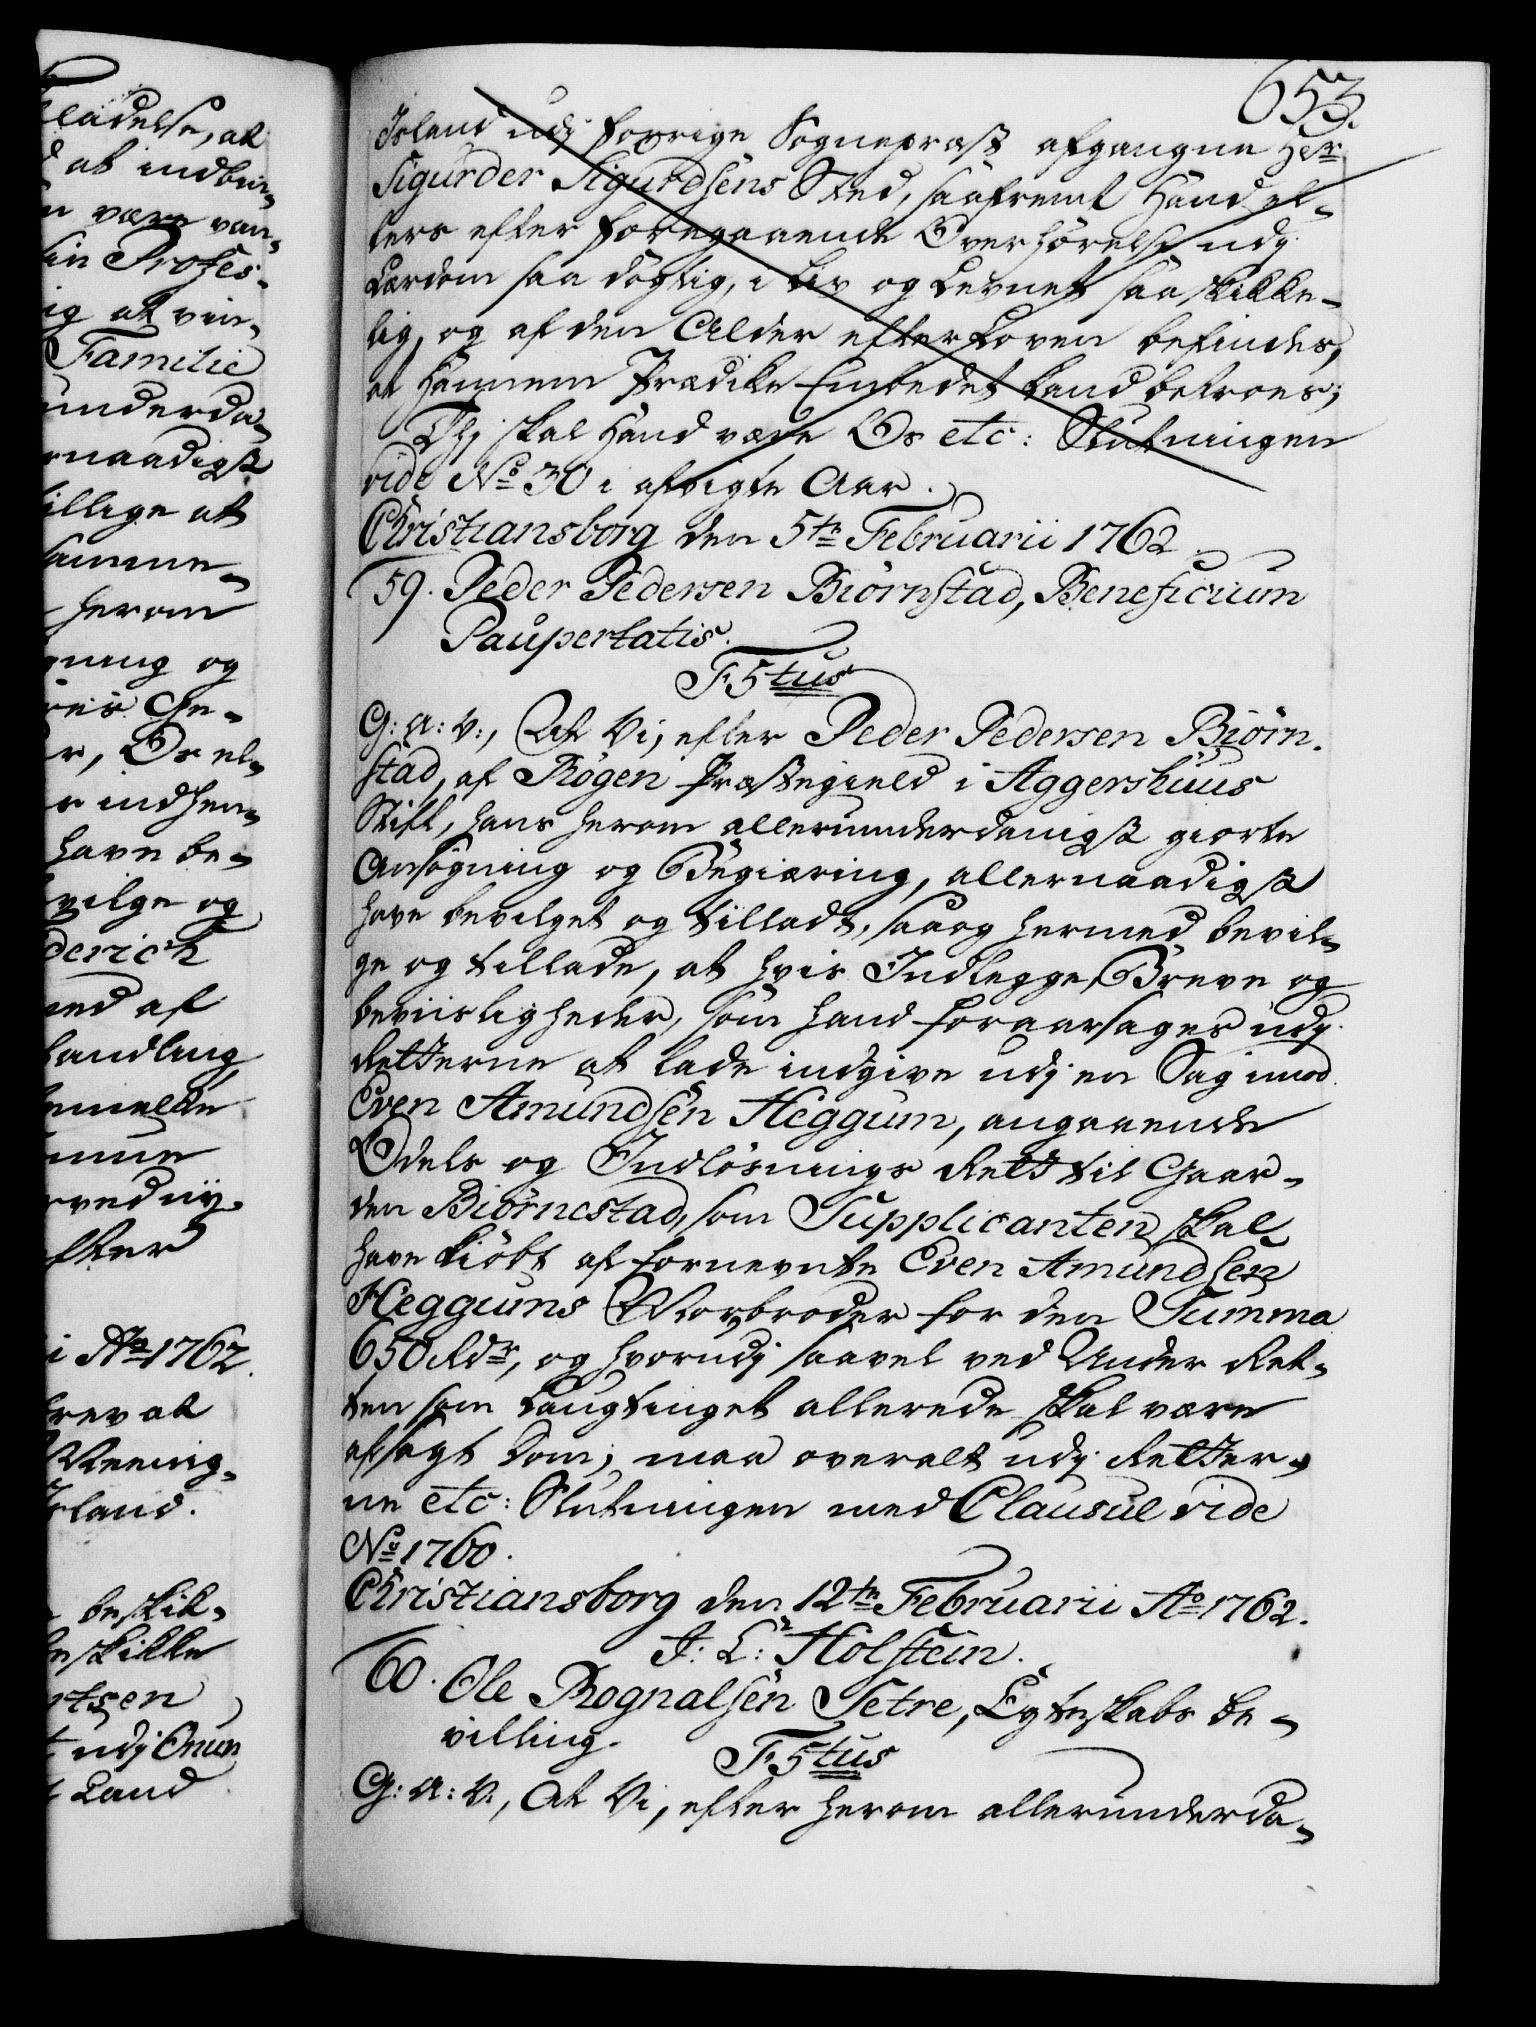 653.
Island udj forrige Sognepræst afgangne Her
Sigurder Sigurdsens Sted, saafremt Hand el-
lers efter foregaaende Overhörelse udj
Lærdom saa dögtig, i Liv og Levnet saa skikke-
lig, og af den Alder efter Loven befindes,
at Hannem Prædike Embedet kand betroes;
Thj skal Hand være Os etc: Slutningen
vide No 30 i afvigte Aar.
Christiansborg den 5te Februarii 1762.
59. Peder Pedersen Biörnstad, Beneficium
Paupertatis.
F5tus
G: A: V:, At Vi, efter Peder Pedersen Biörn-
stad, af Rögen Præstegield i Aggershuus
Stift, hans herom allerunderdanigst giorte
Ansögning og Begiæring, allernaadigst
have bevilget og tilladt, saa og hermed bevil-
ge og tillade, at hvis Indlegge, Breve og
beviisligheder, som hand foraarsages udj
Retterne at lade indgive udj en Sag imod
Even Amundsen Heggum, angaaende
Odels og Indlösnings Rett til Gaar-
den Biörnestad, som Supplicanten skal
have kiöbt af fornevnte Even Amundsen
Heggums Morbroder for den Summa
650 Rdr, og hvorudj saavel ved Under Ret-
ten som Laugtinget allerede skal være
afsagt Dom; maa overalt udj Retter-
ne etc: Slutningen med Clausul vide
No 1760.
Christiansborg den 12te Februarii Ao 1762.
J: L: Holstein.
60. Ole Rognalsen Setre, Egteskabs be-
villing.
F5tus
G: A: V:, At Vi, efter herom allerunderda-
ladelse, at
at indbin-
være van-
sin Profes-
ig at vin-
Familie
underda-
rnaadigst
tillige at
samme-
herom
gning og
r, Os el-
r indhen-
have be-
vilge og
derich
ned af
handling
efter
i Ao 1762.
Island.
beskik-
beskikke
udj Onun
Land